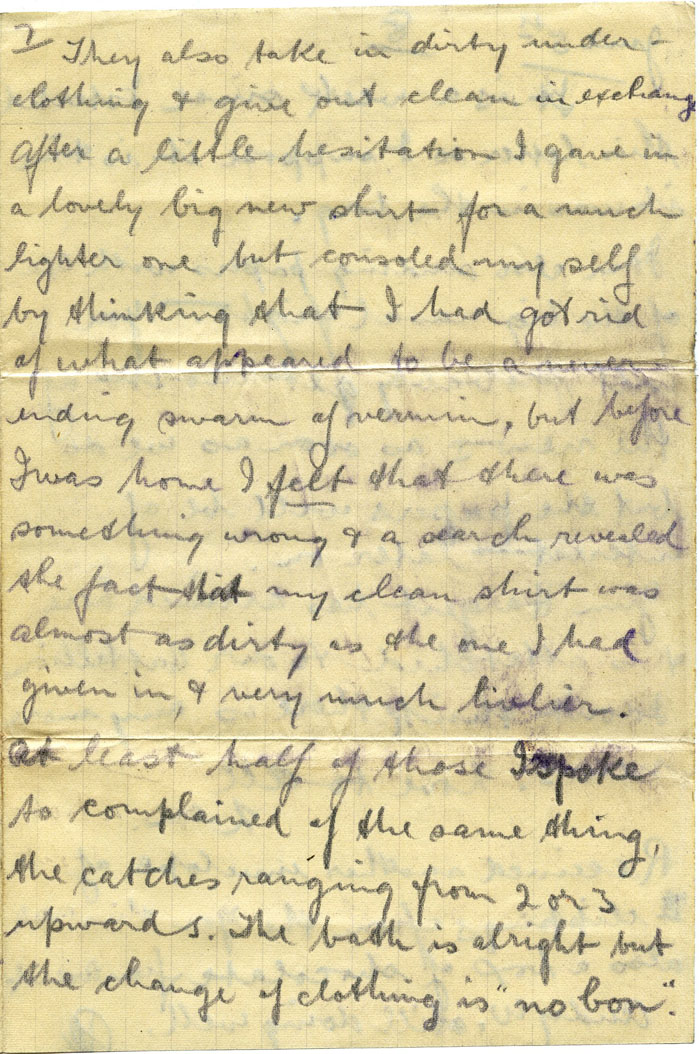 7
They also take in dirty under-
clothing & give out clean in exchange
After a little hesitation I gave in
a lovely big new shirt for a much
lighter one but consoled my self
by thinking that I had got rid
of what appeared to be a never
ending swarm of vermin, but before
I was home I feet that there was
something wrong & a search revealed
the fact that my clean shirt was
almost as dirty as the one I had
given in, & very much livlier.
At least half of those I spoke
to complained of the same thing,
the catches ranging from 2 or 3
upwards. The bath is alright but
the change of clothing is "no bon".